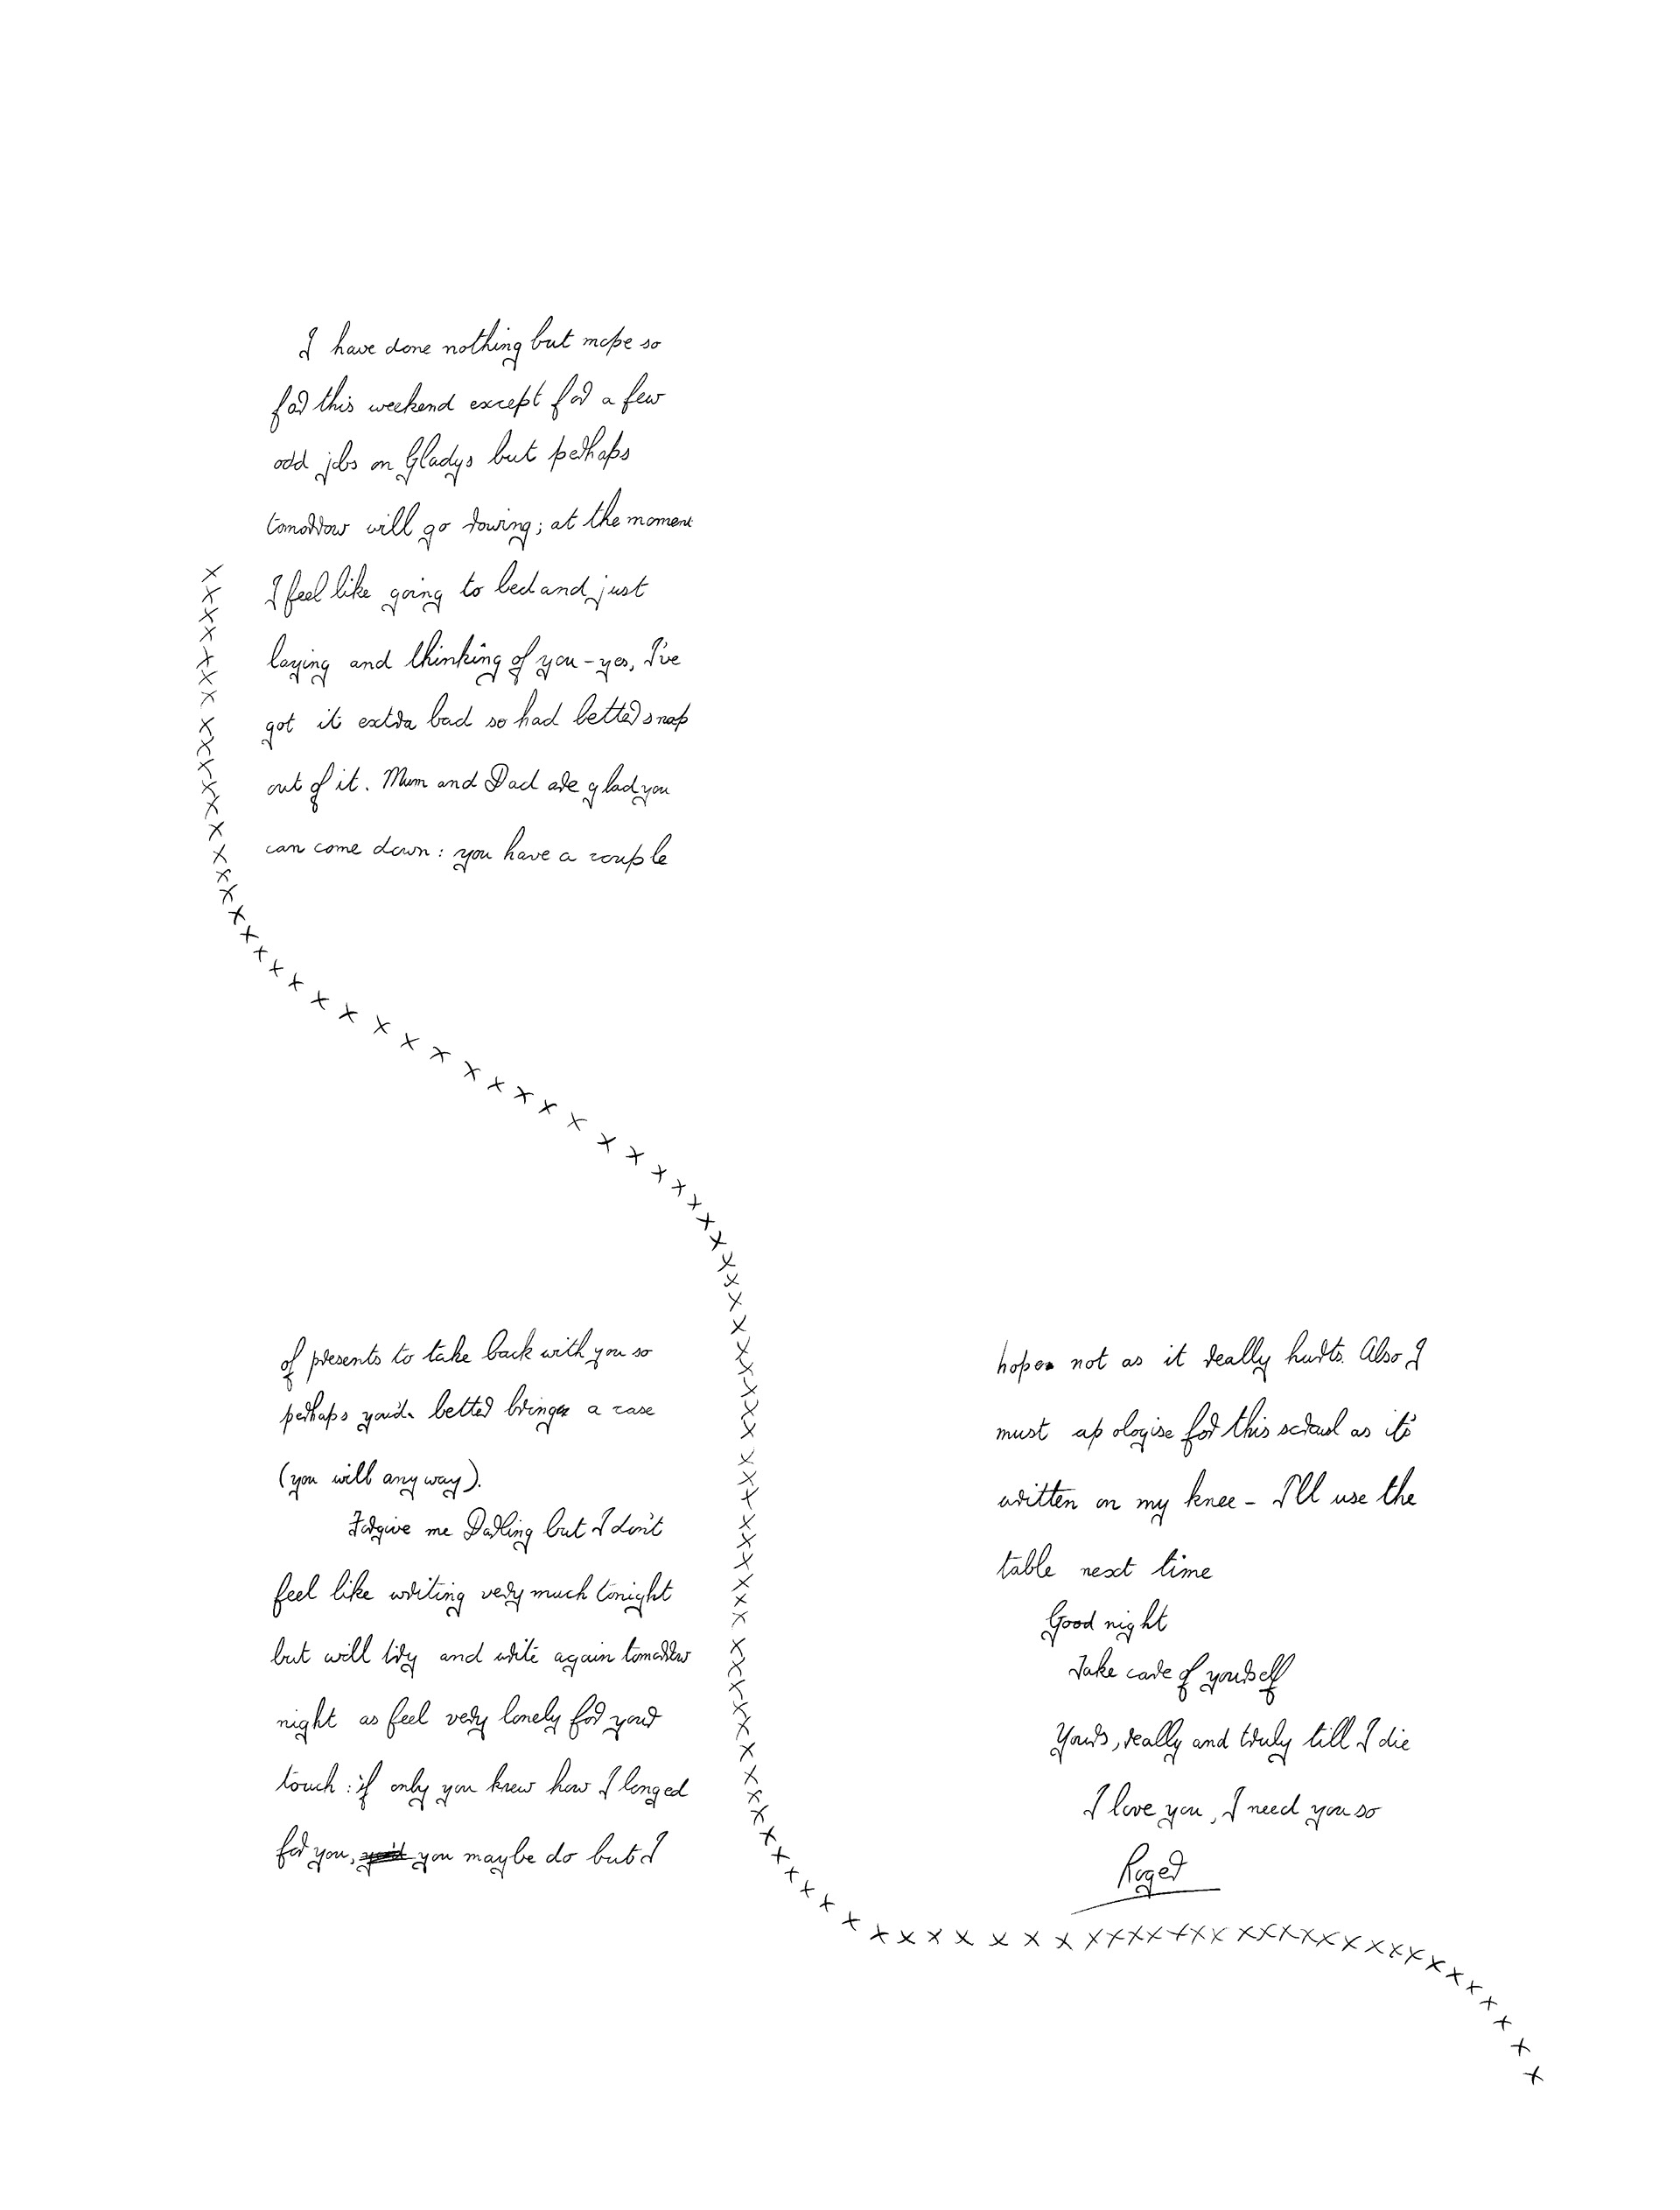 I have done nothing but mope so
far this weekend except for a few
odd jobs on Gladys but perhaps
tomorrow will go rowing; at the moment
I feel like going to bed and just
laying and thinking of you - yes, I've
got it extra bad so had better snap
out of it. Mum and Dad are glad you
can come down: you have a couple
of presents to take back with you so
perhaps you'd better bring a case
(you will anyway).
Forgive me Darling but I don't
feel like writing very much tonight
but will try and write again tomorrow
night as feel very lonely for your
touch: if only you knew how I longed
for you, you maybe do but I
hope not as it really hurts. Also I
must apologise for this scrawl as it's
written on my knee - I'll use the
table next time
Good night
Take care of yourself
Yours, really and truly till I die
I love you, I need you so
Roger